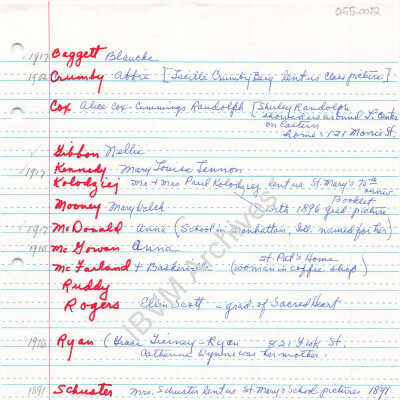 055-0012
1917 Baggett Blanche
1902 Crumby Abbie [Lucille Crumby Berg lent us class picture]
Cox Alice Cox-Cummings Randolph [Shirley Randolph
around
on Eastern
home: 121 Morris St.
Gibbon Nellie
1917 Kennedy Mary Louise Lennon
Kolodziej Mr & Mrs Paul Kolodziej lent us St. Mary's 75th
Booklet
Mooney Mary Walsh with 1896 grad picture
1917 McDonald Anne (School in Manhattan, Ill. named for her)
1918 McGowan Anna
St. Pat's Home
McFarland & Baskerville (woman in coffee shop)
Ruddy
Rogers Ellen Scott - grad. of Sacred Heart
1916 Ryan (Grace Tierney-Ryan 321 York St.
Catherine Wynne was her mother.
1891 Schuster Mrs. Schuster lent us St. Mary's School pictures 1891
IBVM Archives